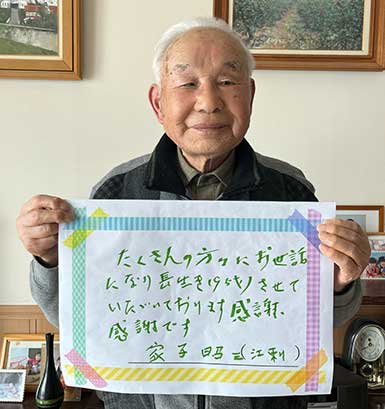 たくさんの方々にお世話
になり長生き(91代)させて
いただいております感謝、
感謝です
家子 昭三(江刺)